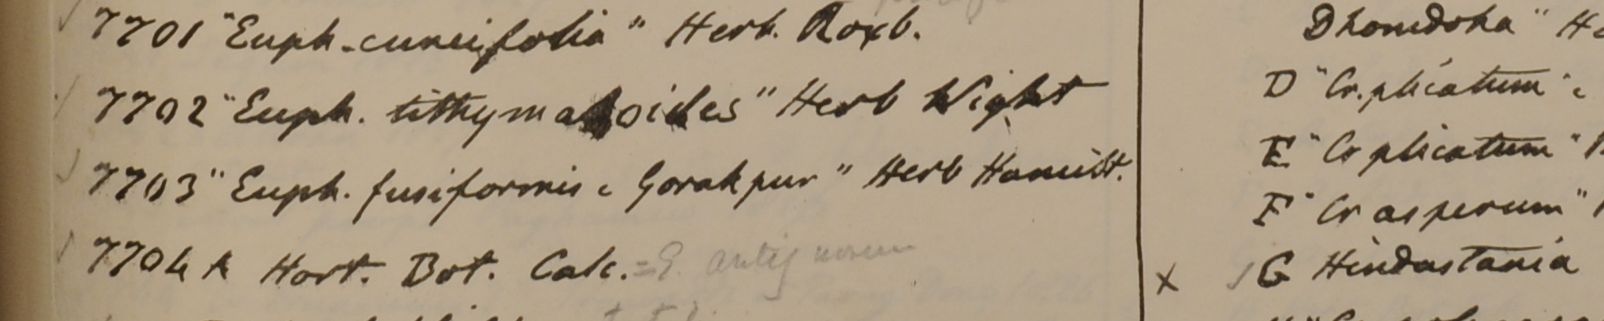 7701 "Euph. cuneifolia" Herb. Roxb.
7702 "Euph. tithymaloides" Herb Wight
7703 "Euph. fusiformis c Gorakpur" Herb Hamilt.
7704 A Hort. Bot. Calc. = E. antiquorum
Dhomdoha" H
D "Cr. plicatum" c
E "Cr plicatum"
F "Cr asperum"
x G Hindustania